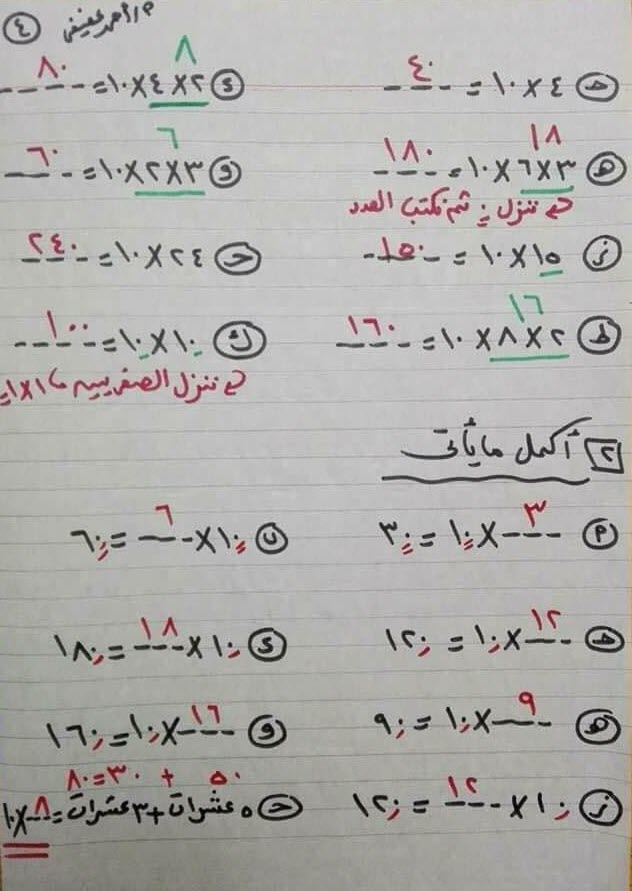 م/أحمد عفيفي ٤
جـ ٤ × ١٠ = ٤٠
د ٢ × ٤ × ١٠ = ٨٠
٨
هـ ٣ × ٦ × ١٠ = ١٨٠
١٨
و ٣ × ٢ × ١٠ = ٦٠
٦
ننزل . ثم نكتب العدد
ز ١٥ × ١٠ = ١٥٠
ح ٢٤ × ١٠ = ٢٤٠
ط ٢ × ٨ × ١٠ = ١٦٠
١٦
ك ١٠ × ١٠ = ١٠٠
ننزل الصفرين ١ × ١ =
٢ أكمل ما يأتى
٣ × ١٠ = ٣٠
ب ١٠ × ٦ = ٦٠
جـ ١٢ × ١٠ = ١٢٠
د ١٠ × ١٨ = ١٨٠
هـ ٩ × ١٠ = ٩٠
و ١٦ × ١٠ = ١٦٠
ز ١٠ × ١٢ = ١٢٠
٥٠ + ٣٠ = ٨٠
ح ٥ عشرات + ٣ عشرات = ٨ × ١٠